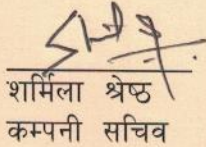 शर्मिला श्रेष्ठ
कम्पनी सचिव